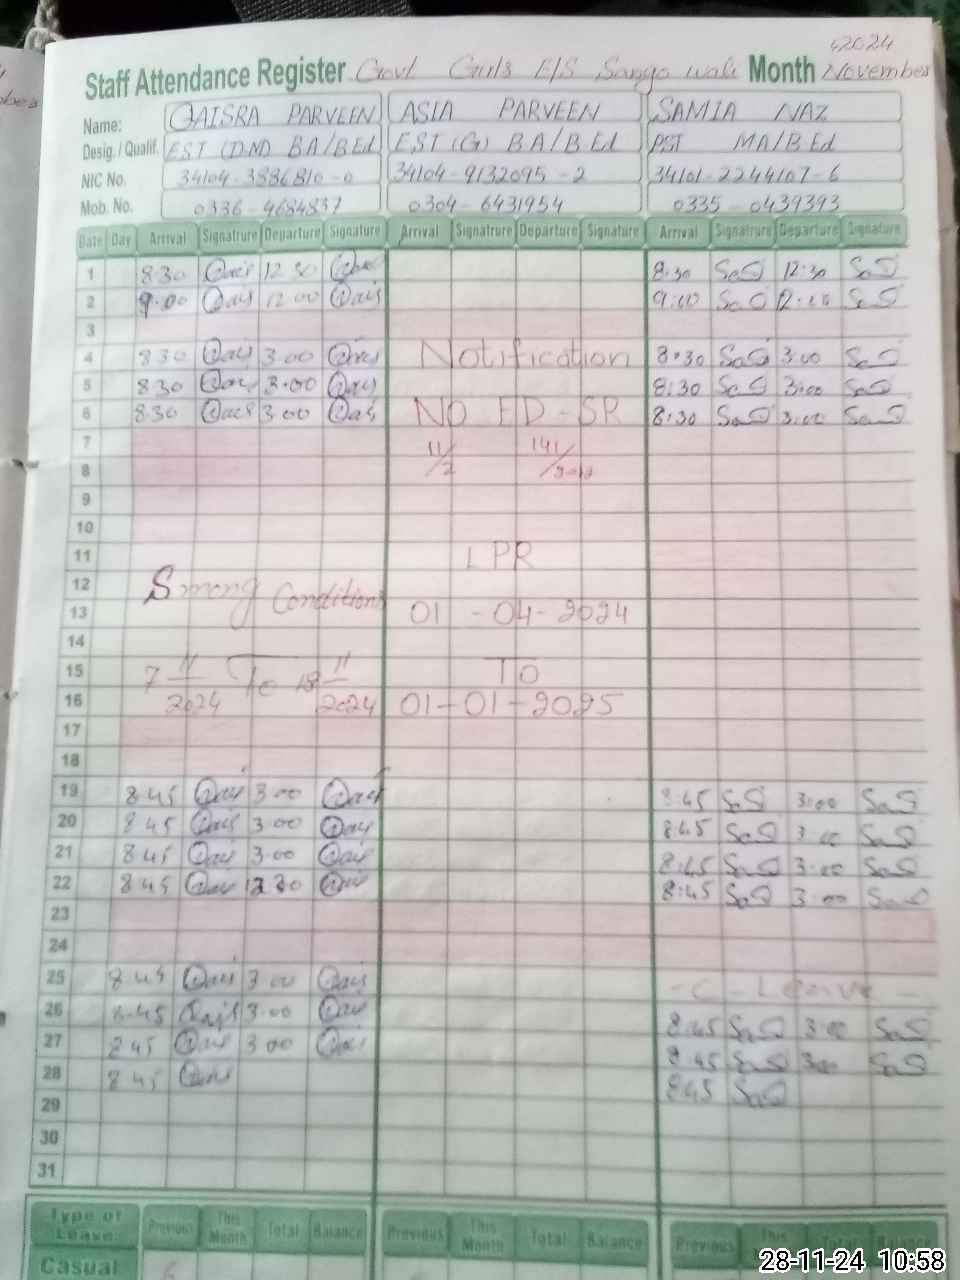 2024
Staff Attendance Register Govt Girls E/S Sango wali Month November
Name: QAISRA PARVEEN ASIA PARVEEN SAMIA NAZ
Desig./Qualif. EST (DM) BA/BEd EST (G) BA/BEd PST MA/BEd
NIC No. 34104-3886810-0 34104-9132095-2 34101-2244107-6
Mob. No. 0336-4684837 0304-6431954 0335-0439393
Date Day Arrival Signatrure Departure Signature Arrival Signatrure Departure Signature Arrival Signatrure Departure Signature
1 8:30 Qais 12 30 Qais 8:30 SaS 12:30 SaS
2 9:00 Qais 12:00 Qais 9:00 SaS 12:00 SaS
3
4 8 30 Qais 3.00 Qais Notification 8:30 SaS 3:00 SaS
5 8 30 Qais 3.00 Qais 8:30 SaS 3:00 SaS
6 8 30 Qais 3.00 Qais NO ED-SR 8:30 SaS 3:00 SaS
7 11/2 141/
8
9
10
11 LPR
12 Smong Conditions
13 01-04-2024
14
15 7 11/2024 To 18 11/2024 TO
16 01-01-2025
17
18
19 8 45 Qais 3.00 Qais 8:45 SaS 3:00 SaS
20 8 45 Qais 3.00 Qais 8:45 SaS 3:00 SaS
21 8 45 Qais 3.00 Qais 8:45 SaS 3:00 SaS
22 8 45 Qais 12 30 Qais 8:45 SaS 3:00 SaS
23
24
25 8 45 Qais 3 00 Qais -C-Leave-
26 8.45 Qais 3.00 Qais 8:45 SaS 3:00 SaS
27 8 45 Qais 3 00 Qais 8:45 SaS 3:00 SaS
28 8 45 Qais 8:45 SaS
29
30
31
Type of Lease Previous This Month Total Balance Previous This Month Total Balance Previous This Total Balance
Casual
28-11-24 10:58